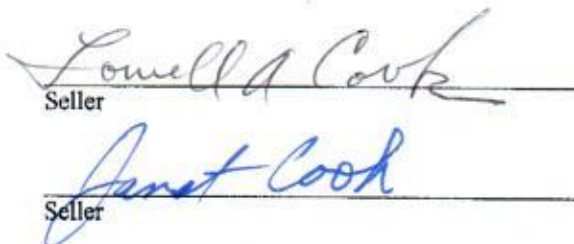 Lowell A Cook
Seller
Janet Cook
Seller